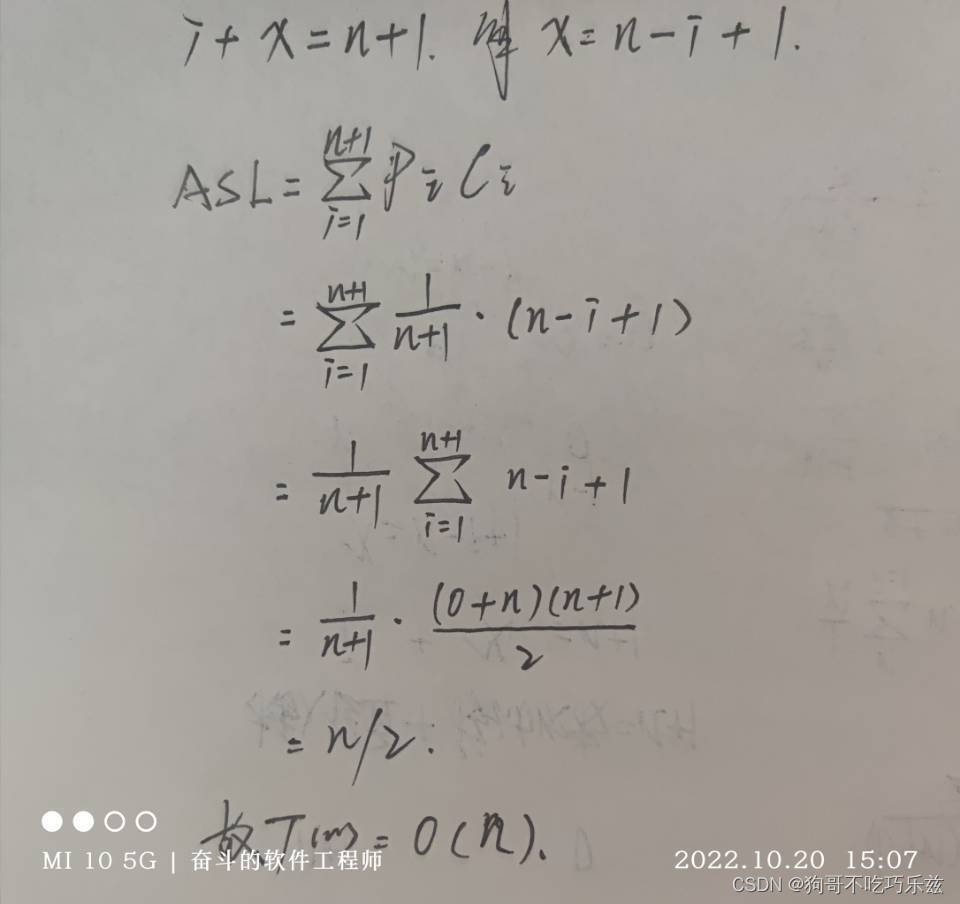 i + x = n+1. 解 x = n - i + 1.
ASL = \sum_{i=1}^{n+1} P_i C_i
= \sum_{i=1}^{n+1} \frac{1}{n+1} · (n-i+1)
= \frac{1}{n+1} \sum_{i=1}^{n+1} n-i+1
= \frac{1}{n+1} · \frac{(0+n)(n+1)}{2}
= n/2.
故 T(n) = O(n).
MI 10 5G | 奋斗的软件工程师
2022.10.20 15:07
CSDN @狗哥不吃巧乐兹